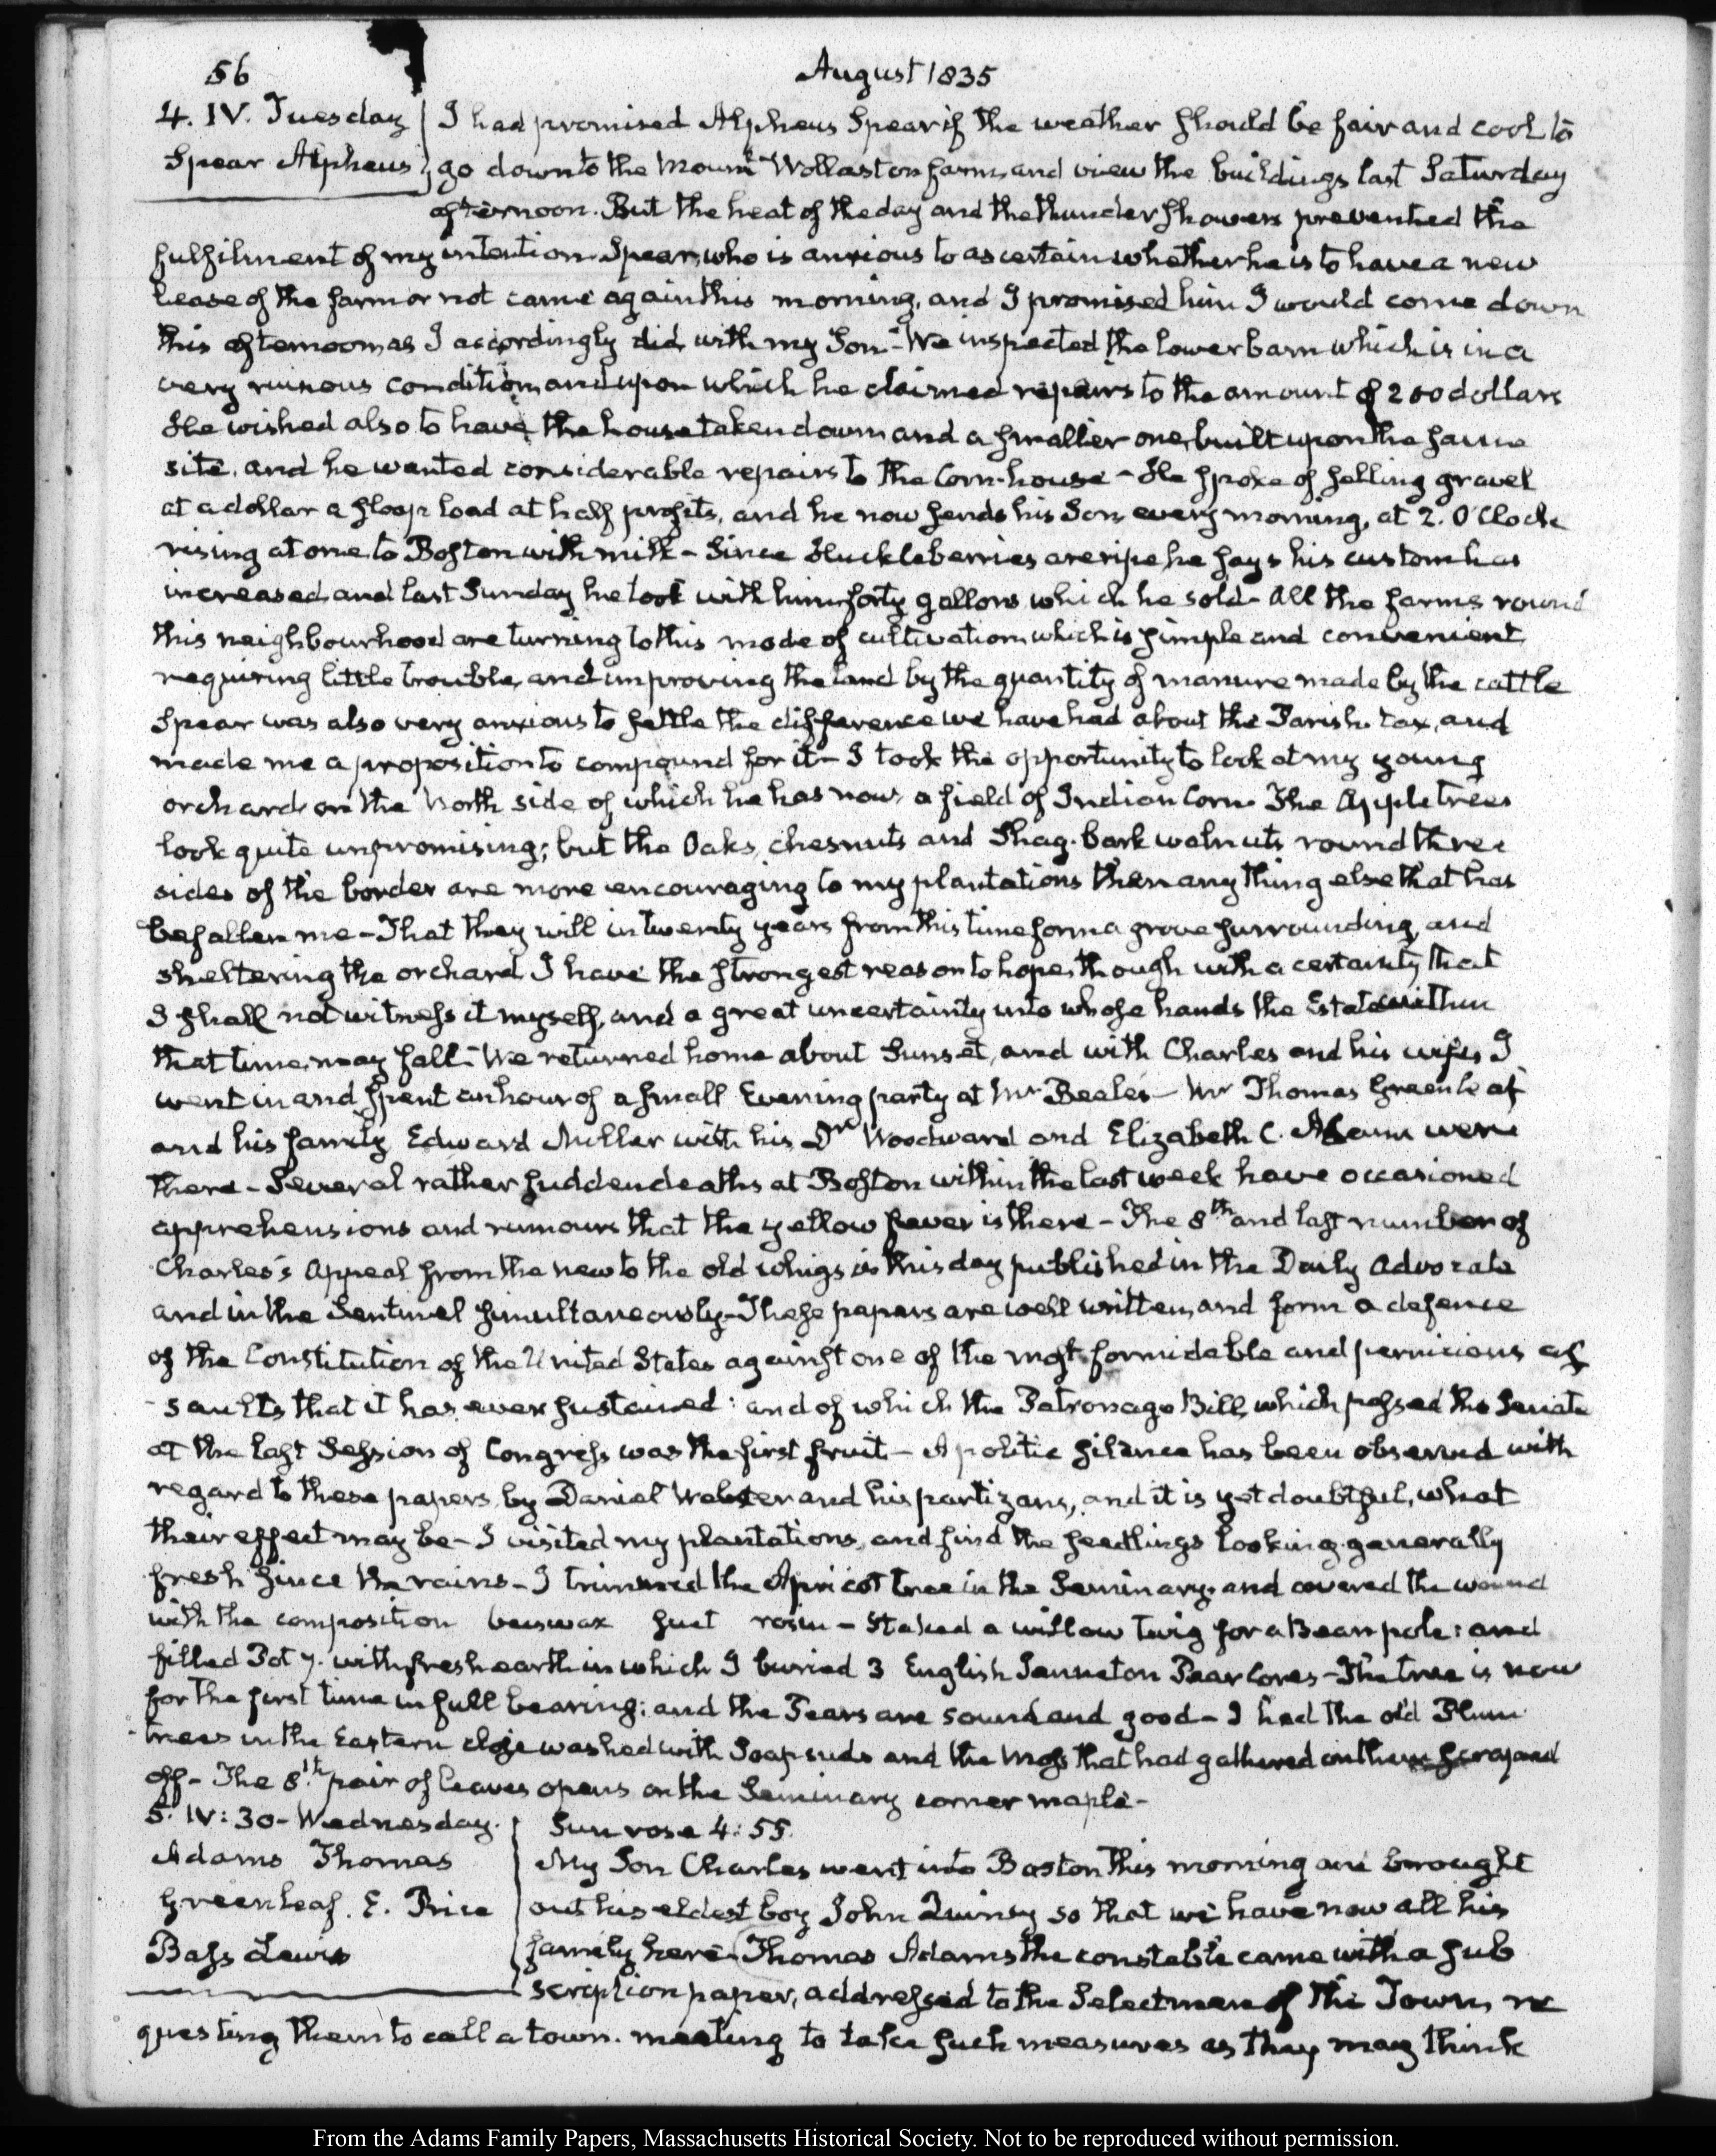 56
August 1835
4. IV. Tuesday
Spear Alpheus
I had promised Alpheus Spear if the weather should be fair and cool to
go down to the Mount Wollaston farm, and view the buildings last Saturday
afternoon. But the heat of the day and the thunder showers prevented the
fulfilment of my intention. Spear, who is anxious to ascertain whether he is to have a new
lease of the farm or not came again this morning, and I promised him I would come down
this afternoon, as I accordingly did, with my Son - We inspected the lower barn which is in a
very ruinous condition, and upon which he claimed repairs to the amount of 200 dollars
He wished also to have the house taken down and a smaller one, built upon the same
site, and he wanted considerable repairs to the Corn-house - He spoke of selling gravel
at a dollar a sloop load at half profits, and he now sends his Son every morning, at 2. O'Clock
rising at one, to Boston with milk - Since Huckleberries are ripe he says his custom has
increased, and last Sunday he took with him forty gallons which he sold - All the farms round
this neighbourhood are turning to this mode of cultivation, which is simple and convenient
requiring little trouble, and improving the land by the quantity of manure made by the cattle
Spear was also very anxious to settle the difference we have had about the Parish tax, and
made me a proposition to compound for it - I took the opportunity to look at my young
orchard, on the North side of which he has now, a field of Indian Corn. The Apple trees
look quite unpromising; but the Oaks, chesnuts and Shag-bark walnuts round three
sides of the border are more encouraging to my plantations than any thing else that has
befallen me - That they will in twenty years from this time form a grove surrounding, and
sheltering the orchard, I have the strongest reason to hope, though with a certainty that
I shall not witness it myself, and a great uncertainty into whose hands the Estate within
that time, may fall. We returned home about Sunset, and with Charles and his wife, I
went in and spent an hour of a small Evening party at Mr Beale's - Mr Thomas Greenleaf
and his family Edward Miller with his Dr Woodward and Elizabeth C. Adams were
there - Several rather sudden deaths at Boston within the last week have occasioned
apprehensions and rumours that the yellow fever is there - The 8th and last number of
Charles's Appeal from the new to the old whigs is this day published in the Daily Advocate
and in the Sentinel simultaneously - These papers are well written, and form a defence
of the Constitution of the United States against one of the most formidable and pernicious as
saults that it has ever sustained: and of which the Patronage Bill, which passed the Senate
at the last Session of Congress was the first fruit - A politic silence has been observed with
regard to these papers, by Daniel Webster and his partizans, and it is yet doubtful, what
their effect may be - I visited my plantations, and find the seedlings looking generally
fresh since the rains - I trimmed the Apricot tree in the Seminary, and covered the wound
with the composition beeswax suet rosin - Staked a willow twig for a Bean pole: and
filled Pot 7. with fresh earth in which I buried 3 English Pear Cores - The tree is now
for the first time in full bearing: and the Pears are sound and good - I had the old Plum
trees in the Eastern close washed with Soap suds and the Moss that had gathered on them scraped
off - The 8th pair of leaves opens on the Seminary corner maple -
5. IV: 30 - Wednesday.
Adams Thomas
Greenleaf. E. Price
Bass Lewis
Sun rose 4:55.
My Son Charles went into Boston this morning and brought
out his eldest boy John Quincy so that we have now all his
family here - Thomas Adams the constable came with a sub
scription paper, addressed to the Selectmen of the Town, re
questing them to call a town-meeting to take such measures as they may think
From the Adams Family Papers, Massachusetts Historical Society. Not to be reproduced without permission.